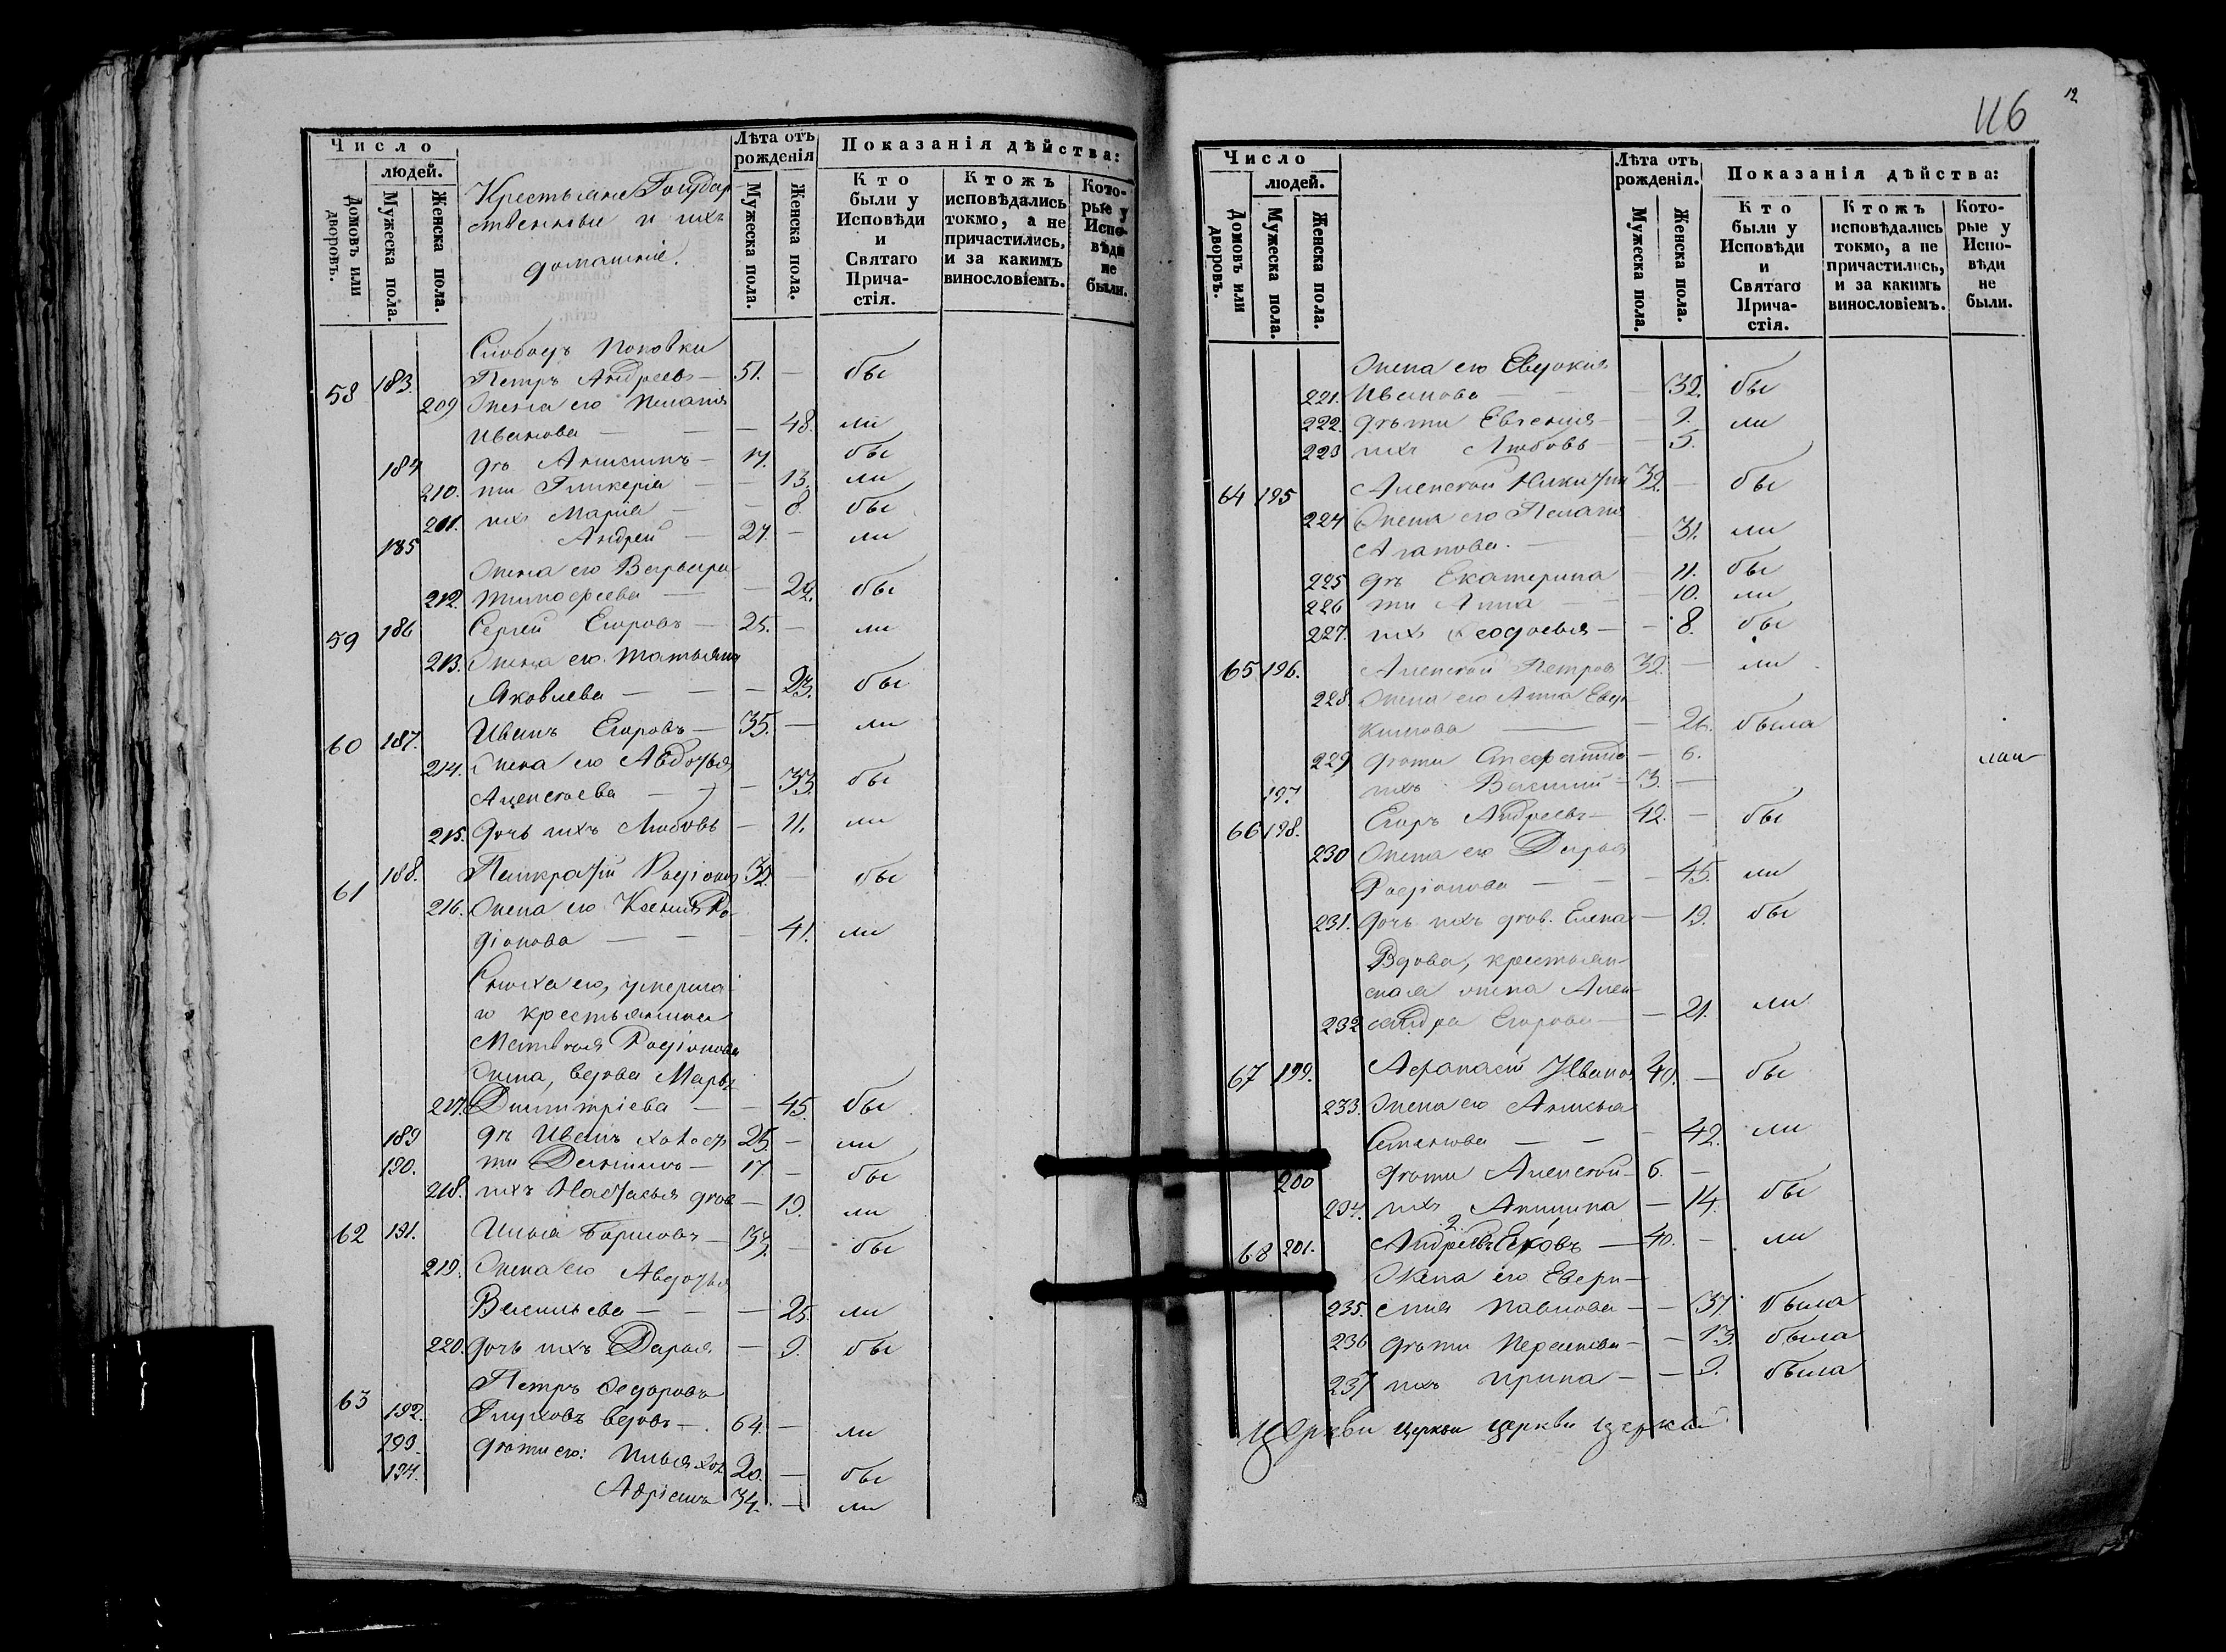 Число
людей.
Домовъ или дворовъ.
Мужеска пола.
Женска пола.
Крестьяне Государ-
ственные и ихъ
домашніе.
Лѣта отъ рожденія
Мужеска пола.
Женска пола.
Показанія дѣйства:
Кто были у Исповѣди и Святаго Прича-стія.
Ктожъ исповѣдались токмо, а не причастились, и за какимъ винословіемъ.
Кото-рые у Испо-вѣди не были.
Слободъ Поповки
58 183. Петръ Андреевъ — 51. — бы
209 Жена его Пелагія
Иванова — — — 48. ли
184 дѣ Анисимъ — 17. бы
210. ти Гликерія — — 13. ли
211. ихъ Марія — — 8. бы
185 Андрей — 27. — ли
Жена его Варвара
212. Тимофеева — — 22. бы
59 186 Сергей Егоровъ — 25. — ли
213. Жена его Татьяна
Яковлева — — — 23. бы
60 187. Иванъ Егоровъ — 35. — ли
214. Жена его Авдотья
Алексеева — — — 33. бы
215. Дочь ихъ Любовь — 11. ли
61 188. Панкратій Родіоновъ 39. — бы
216. Жена его Ксенія Ро-
діонова — — — 41. ли
Сноха его, умерша-
го крестьянина
Матвея Родіонова
Жена, вдова Марья
217. Димитріева — — 45. бы
189 дѣ Иванъ холост 25. — ли
190. ти Даніилъ — 17. — бы
218. ихъ Настасья дѣв — 19. ли
62 191. Илья Борисовъ — 37. — бы
219. Жена его Авдотья
Васильева — — — 25. ли
220. Дочь ихъ Дарья — 9. бы
63 Петръ Федоровъ
192. Глуховъ вдовъ — 64. — ли
193. дѣти его: Илья хол 20. — бы
194. Адріанъ 34. — ли
116
12
Число
людей.
Домовъ или дворовъ.
Мужеска пола.
Женска пола.
Лѣта отъ рожденія.
Мужеска пола.
Женска пола.
Показанія дѣйства:
Кто были у Исповѣди и Святаго Прича-стія.
Ктожъ исповѣдались токмо, а не причастились, и за какимъ винословіемъ.
Кото-рые у Испо-вѣди не были.
Жена его Евдокія
221. Иванова — — — 32. бы
222. дѣти Евгенія — — 9. ли
223 ихъ Любовь — — 5.
64 195 Алексей Никитин 32. — бы
224 Жена его Пелагія
Агапова. — — 31. ли
225 дѣ Екатерина — 11. бы
226 ти Анна — — 10. ли
227. ихъ Феодосья — — 8. бы
65 196. Алексей Петровъ 32. — ли
228. Жена его Анна Евдо-
кимова — — 26. была
229 дѣти Стефанида — 6.
197. ихъ Василій — 3. —
66 198. Егоръ Андреевъ — 42. — бы
230 Жена его Дарья
Родіонова — — — 45. ли
231. Дочь ихъ дѣв. Елена — 19. бы
Вдова, крестьян-
ская жена Алек-
232 сандра Егорова — — 21. ли
67 199. Афанасій Ивановъ 40. — бы
233. Жена его Анисья
Семенова — — — 42. ли
200 дѣти Алексей — 6. —
234. ихъ Акилина — 14. бы
68 201. Андрей Ековъ — 40. — ли
Жена его Евграф-
235. — 37. была
236 дѣти Пераскева — — 13. была
237 ихъ Ирина — — 9. была
Церкви церкви церкви церкви